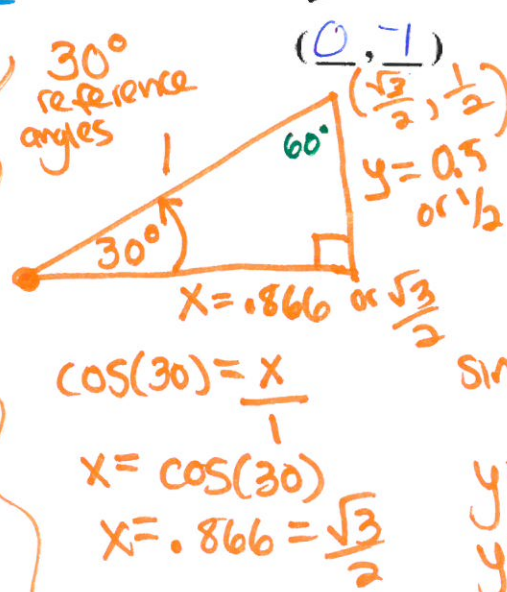 (0, -1)
30°
reference
angles
(√3/2, 1/2)
1
60°
y = 0.5
or 1/2
30°
x = .866 or √3/2
cos(30) = x/1
x = cos(30)
x = .866 = √3/2
sin
y
y